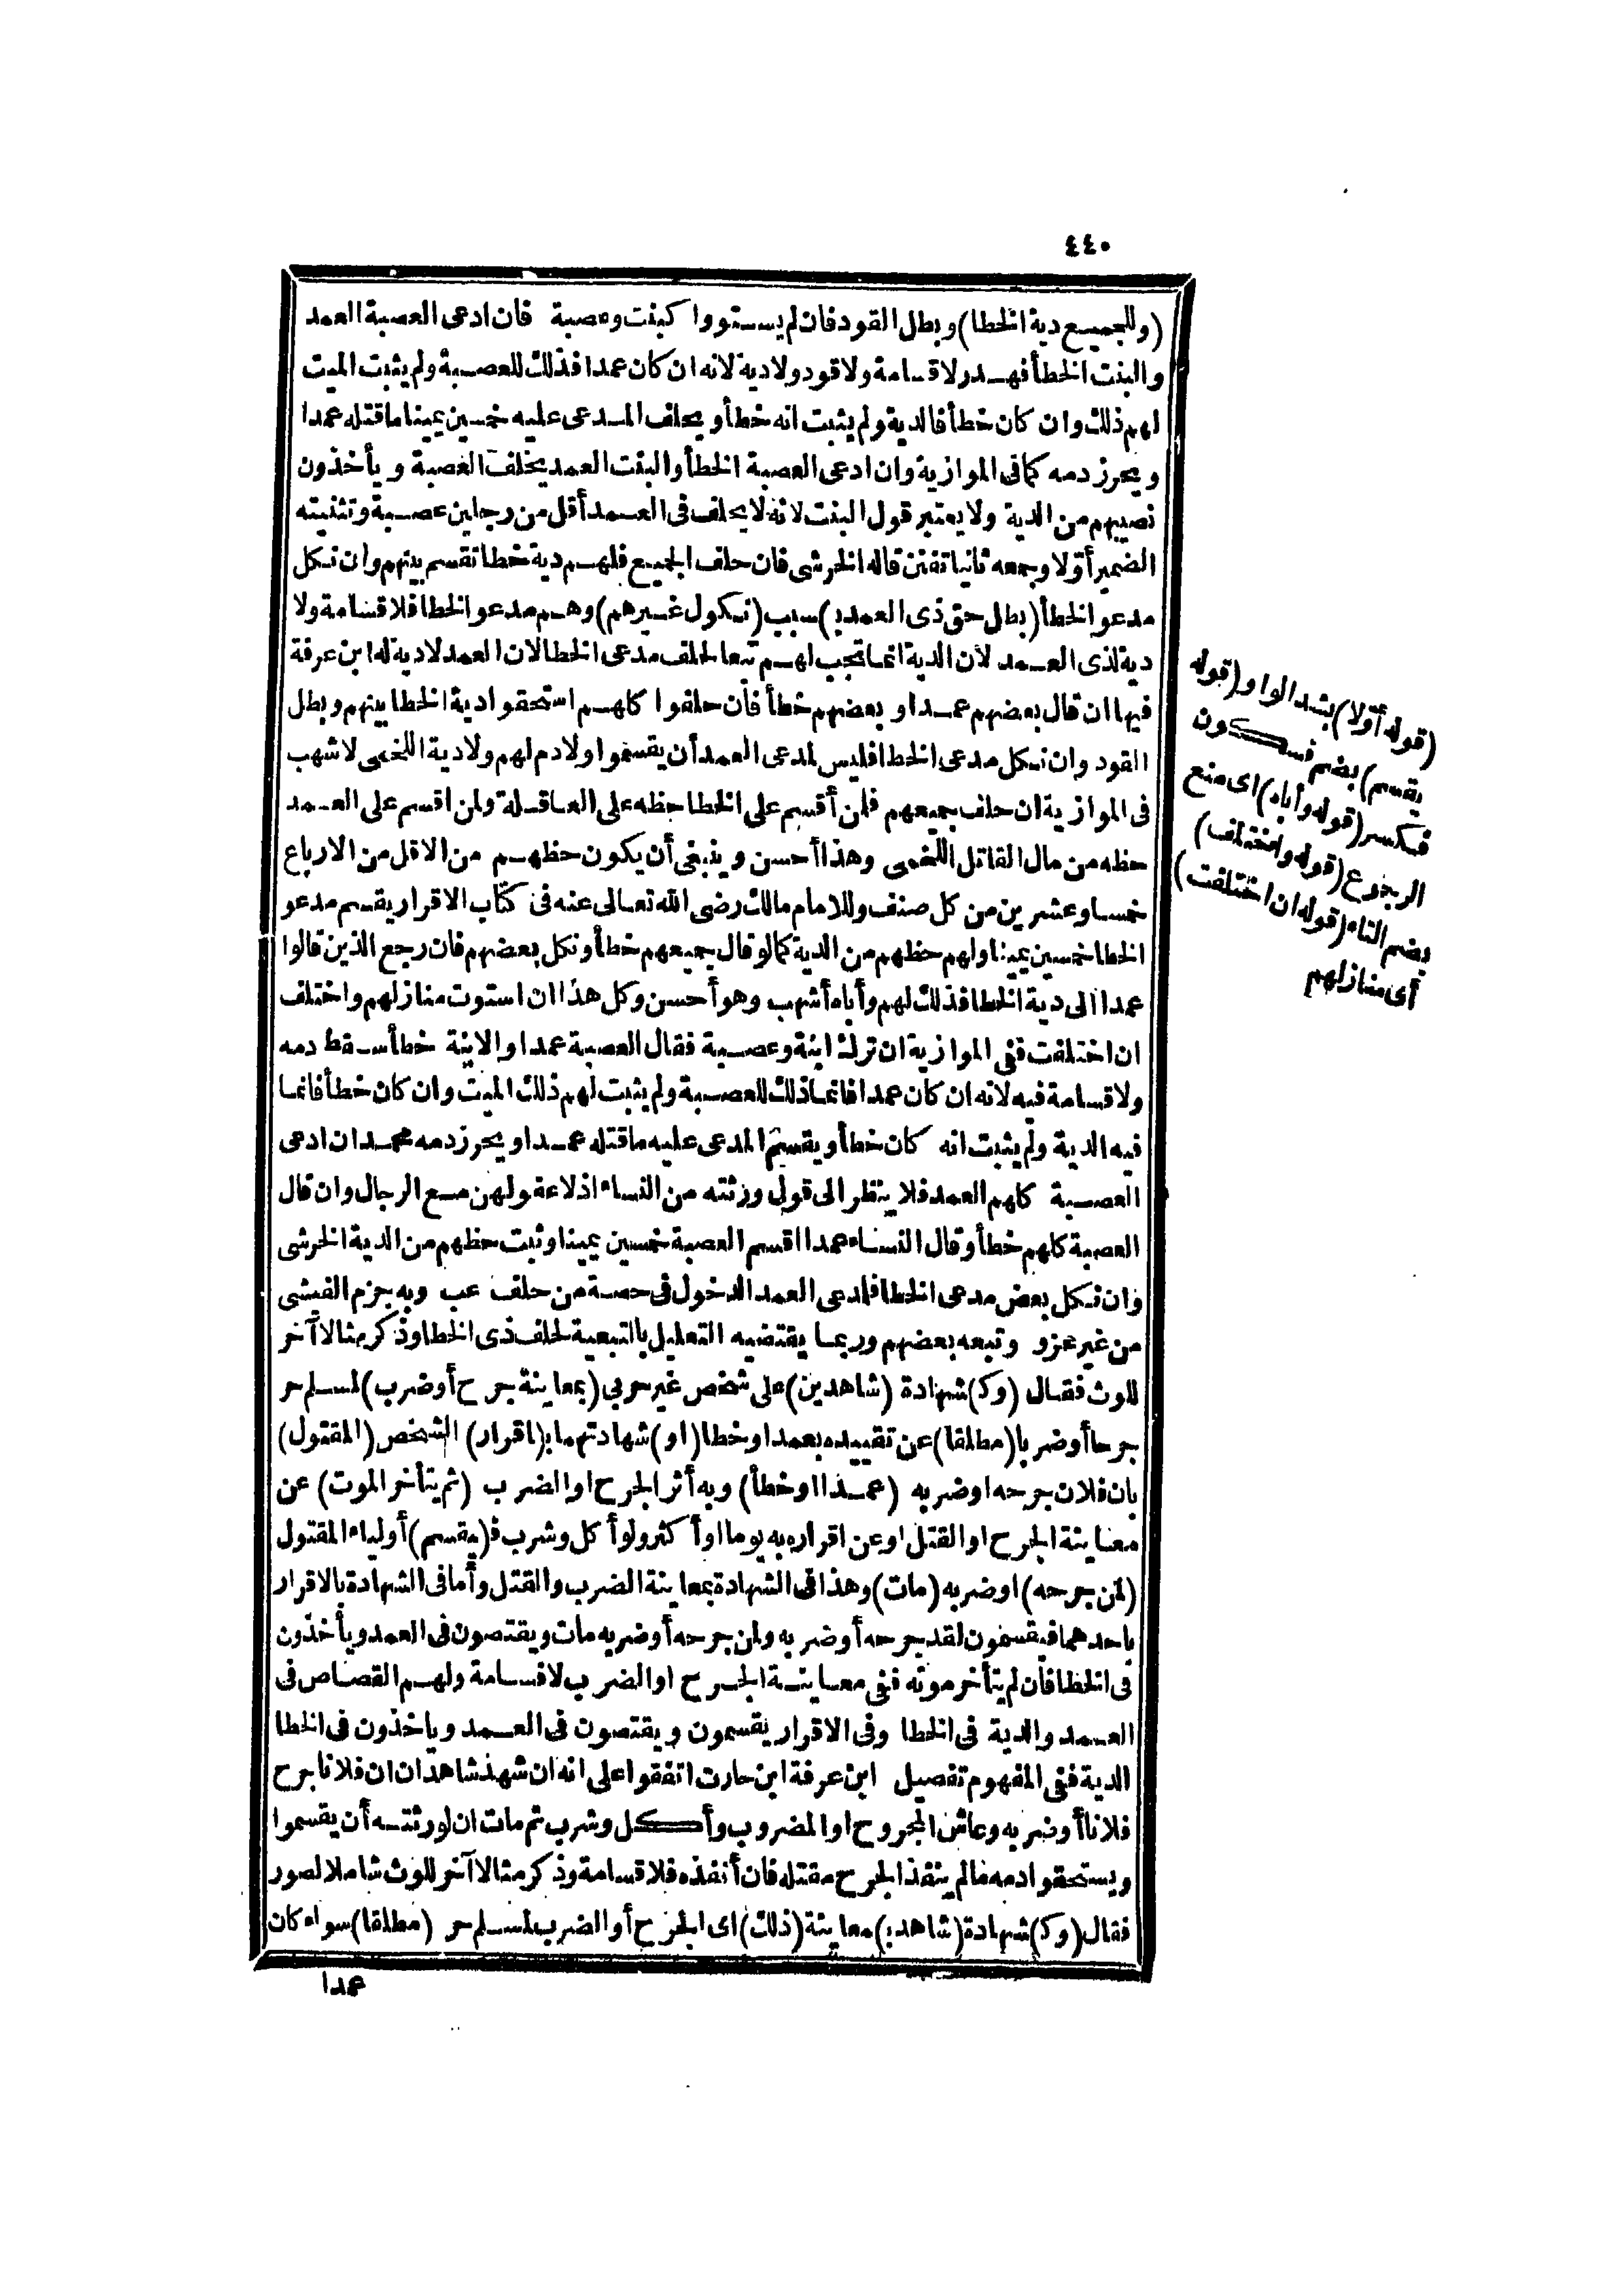 ٤٤٠
(وللجميع دية الخطا) وبطل القود فان لم يستووا كبنت وعصبة فان ادعى العصبة العمد
والبنت الخطأ فهدر لا قسامة ولا قود ولا دية لانه ان كان عمدا فذلك للعصبة ولم يثبت الميت
لهم ذلك وان كان خطأ فالدية ولم يثبت انه خطأ ويحلف المدعى عليه خمسين يمينا ما قتله عمدا
ويحرز دمه كما فى الموازية وان ادعى العصبة الخطأ والبنت العمد يحلف العصبة ويأخذون
نصيبهم من الدية ولا يعتبر قول البنت لانه لا يحلف فى العمد أقل من رجلين عصبة وتثنيته
الضمير أوّلا وجمعه ثانيا تفنن قاله الخرشى فان حلف الجميع فلهم دية خطا تقسم بينهم وان نكل
مدعو الخطأ (بطل حق ذى العمد ب) سبب (نكول غيرهم) وهم مدعو الخطا فلا قسامة ولا
دية لذى العمد لان الدية انما تجب لهم تبعا لحلف مدعى الخطا لان العمد لا دية له ابن عرفة
فيها ان قال بعضهم عمدا وبعضهم خطأ فان حلفوا كلهم استحقوا دية الخطا بينهم وبطل
القود وان نكل مدعى الخطا فليس لمدعى العمد أن يقسموا ولا دم لهم ولا دية اللخمى لاشهب
فى الموازية ان حلف جميعهم فلمن أقسم على الخطا حظه على العاقلة ولمن اقسم على العمد
حظه من مال القاتل اللخمى وهذا أحسن وينبغى أن يكون حظهم من الاقل من الارباع
خمسا وعشرين من كل صنف وللامام مالك رضى الله تعالى عنه فى كتاب الاقرار يقسم مدعو
الخطا خمسين يمينا ولهم حظهم من الدية كما لو قال جميعهم خطأ ونكل بعضهم فان رجع الذين قالوا
عمدا الى دية الخطا فذلك لهم وأباه أشهب وهو أحسن وكل هذا ان استوت منازلهم واختلف
ان اختلفت ففى الموازية ان ترك ابنة وعصبة فقال العصبة عمدا والابنة خطأ سقط دمه
ولا قسامة فيه لانه ان كان عمدا فانما ذلك للعصبة ولم يثبت لهم ذلك الميت وان كان خطأ فانما
فيه الدية ولم يثبت انه كان خطأ ويقسم المدعى عليه ما قتله عمدا ويحرز دمه محمد ان ادعى
العصبة كلهم العمد فلا ينظر الى قول ورثته من النساء اذ لا عفو لهن مع الرجال وان قال
العصبة كلهم خطأ وقال النساء عمدا اقسم العصبة خمسين يمينا وثبت حظهم من الدية الخرشى
وان نكل بعض مدعى الخطا فلمدعى العمد الدخول فى حصة من حلف عب وبه جزم الفيشى
من غير عزو وتبعه بعضهم وربما يقتضيه التعليل بالتبعية لحلف ذى الخطا وذكر مثالا آخر
للوث فقال (وك) شهادة (شاهدين) على شخص غير حربي (بمعاينة جرح أو ضرب) لمسلم حر
جرحا أو ضربا (مطلقا) عن تقييده بعمد او خطا (او) شهادتهما ب(اقرار) الشخص (المقتول)
بان فلان جرحه او ضربه (عمدا او خطأ) وبه أثر الجرح او الضرب (ثم يتأخر الموت) عن
معاينة الجرح او القتل او عن اقراره به يوما او أكثر ولو أكل وشرب ف(يقسم) أولياء المقتول
(لمن جرحه) او ضربه (مات) وهذا فى الشهادة بمعاينة الضرب والقتل وأما فى الشهادة بالاقرار
باحدهما فيقسمون لقد جرحه أو ضربه ولمن جرحه أو ضربه مات ويقتصون فى العمد ويأخذون
فى الخطا فان لم يتأخر موته ففى معاينة الجرح او الضرب لا قسامة ولهم القصاص فى
العمد والدية فى الخطا وفى الاقرار يقسمون ويقتصون فى العمد وياخذون فى الخطا
الدية ففى المفهوم تفصيل ابن عرفة ابن حارث اتفقوا على انه ان شهد شاهدان ان فلانا جرح
فلانا أو ضربه وعاش المجروح او المضروب وأكل وشرب ثم مات ان لورثته أن يقسموا
ويستحقوا دمه ما لم ينفذ الجرح مقتله فان أنفذه فلا قسامة وذكر مثالا آخر للوث شاملا لصور
فقال (وك) شهادة (شاهد ب) معاينة (ذلك) اى الجرح أو الضرب لمسلم حر (مطلقا) سواء كان
عمدا
(قوله أوّلا) بشد الواو (قوله
يقسم) بضم فسكون
فكسر (قوله وأباه) اى منع
الرجوع (قوله واختلف)
بضم التاء (قوله ان اختلفت)
أى منازلهم